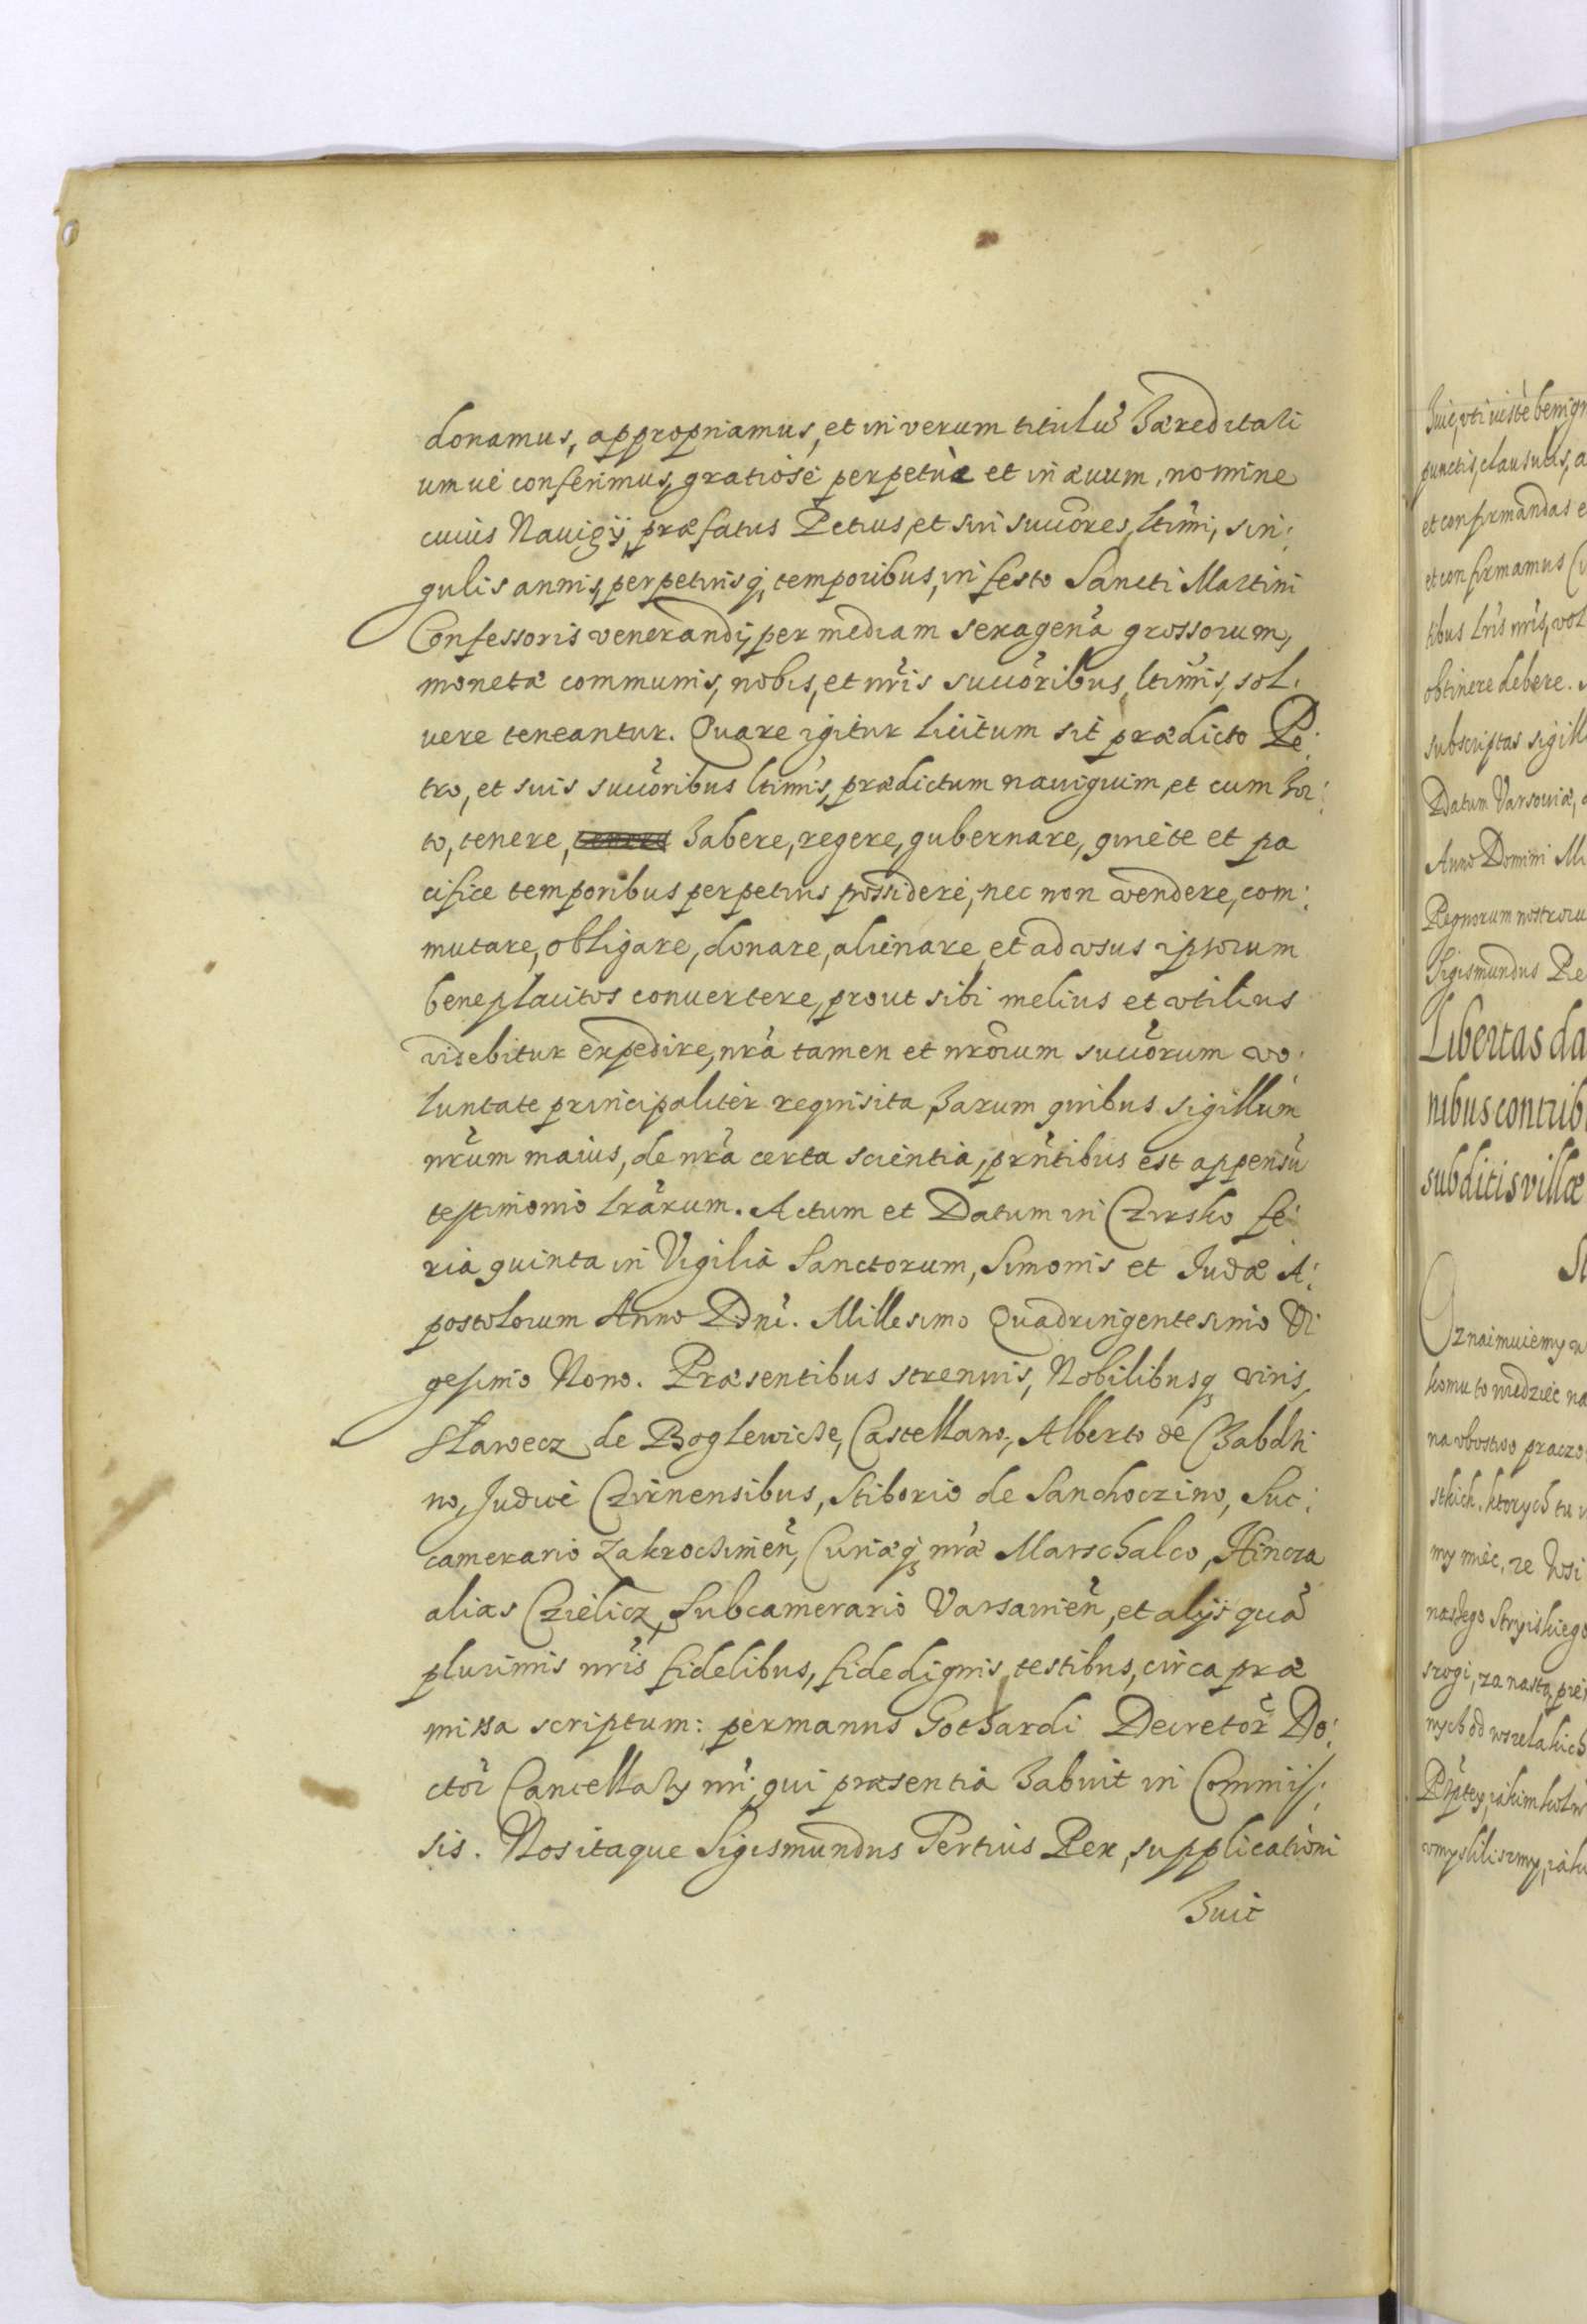 donamus, appropriamus, et in verum titulũ hæreditati
um ué conferimus, gratiosé perpetuæ et in æuum, nomine
cuius Nauigij, præfatus Petrus, et sui succõres, ltimi, sin:
gulis annis, perpetuisq;, temporibus, in festo Sancti Martini
Confessoris venerandi, per mediam sexagena grossorum,
monetæ communis, nobis, et nr̃is succõribus, ltimis, sol:
uere teneantur. Quare igitur licitum sit prædicto Pe:
tro, et suis succõribus ltimis, prædictum nauigium, et cum hor:
to, tenere, habere, regere, gubernare, quiéte et pa
cifice temporibus perpetuis possideré, nec non vendere, com:
mutare, obligare, donare, alienare, et ad vsus ipsorum
beneplacitos conuertere, prout sibi melius et vtilius
videbitur expedire, nrã tamen et nrõrum succõrum vo:
luntate principalitér requisita, harum quibus sigillum
nrũm maius, de nrã certa scientia, prñtibus est appensũ
testimonio lrãrum. Actum et Datum in Czirsko fe:
ria quinta in Vigilia Sanctorum, Simonis et Judæ A:
postolorum Anno Dñi. Millesimo Quadringentesimo Vi
gesimo Nono. Præsentibus strenuis, Nobilibusq; viris,
Sławecz de Boglewicze, Castellano, Alberto de Chabdzi
no, Judicé Czirnensibus, Stiborio de Sanchoczino, Suc:
camerario Zakrocimeñ, Curiæq; nræ Marschalco, Hincza
alias Cziélicz, Subcamerario Varsauieñ, et alijs quã
plurimis nr̃is fidelibus, fidedignis, testibus, circa præ
missa scriptum: per manus Gothardi Decretõr Do:
ctõr Cancellarij nri, qui præsentia habuit in Commis:
sis. Nos itaque Sigismundus Tertius Rex, supplicationi
huic
huic, vti iusté benign
punctis, clausulis, a
et confirmandas e
et confirmamus
tibus lris nris, vol
obtinere debere.
subscriptas sigill
Datum Varsouiæ,
Anno Domini Mi
Regnorum nostroru
Sigismundus Re
Libertas da
nibus contrib
subditis villæ
Oznaimuiemy
komu to wiedziec na
na vbostwo praczo
stkich, ktorych tu
my miéc, ze Wsi
naszego Stryiskiego
srogi, za nastą, prez
nych od wszelakich
vmyslilismy, iako